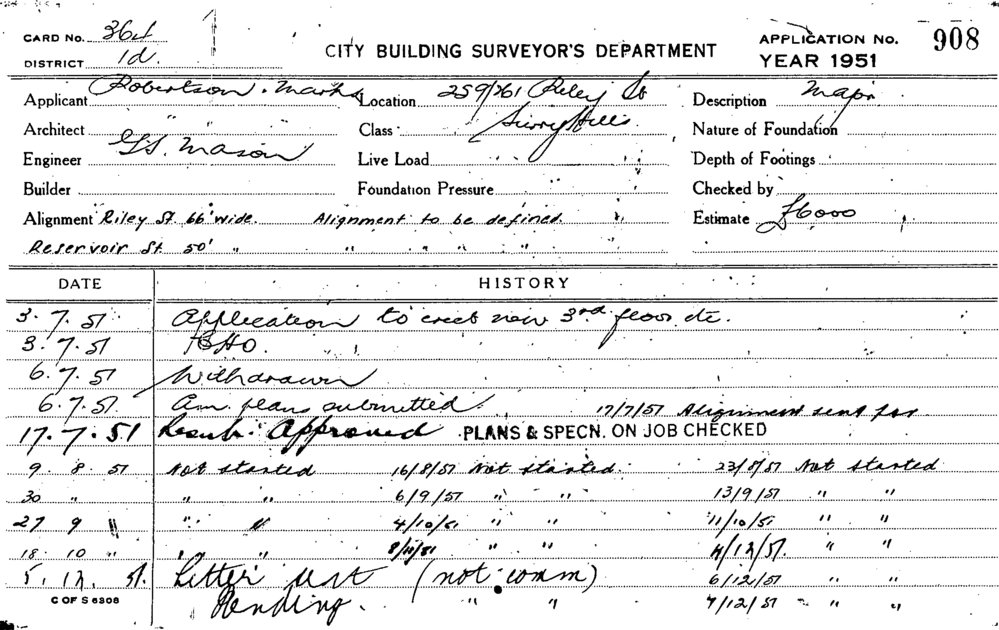 CARD No. 364
DISTRICT 1d
CITY BUILDING SURVEYOR'S DEPARTMENT
APPLICATION No. 908
YEAR 1951
Applicant Robertson & Marks Location 259/261 Riley St Description Major
Architect " " Class Surry Hills Nature of Foundation
Engineer G.S. Mason Live Load Depth of Footings
Builder Foundation Pressure Checked by
Alignment Riley St. 66' wide. Alignment to be defined. Estimate £6000
Reservoir St. 50' " " " " "
DATE HISTORY
3.7.51 Application to erect new 3rd floor etc.
3.7.51 BHO.
6.7.51 Withdrawn
6.7.51. Am. plans submitted. 17/7/51 Alignment sent for
17.7.51 Approved PLANS & SPECN. ON JOB CHECKED
9. 8. 51 Not started 16/8/51 Not started. 23/8/51 Not started
30 " " " 6/9/51 " " 13/9/51 " "
27 9 " " " 4/10/51 " " 11/10/51 " "
18. 10 " " " 8/11/51 " " 4/12/51. " "
5. 12. 51. Letter sent (not comm) 6/12/51 " "
C OF S 6308 Pending. " " 7/12/51 " "